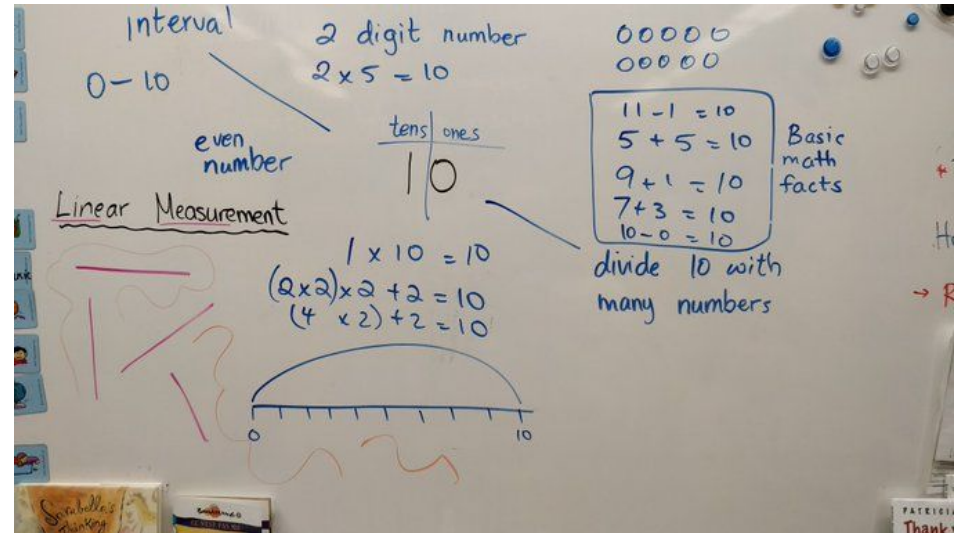 Interval
0 - 10
even
number
Linear Measurement
2 digit number
2 x 5 = 10
tens ones
10
1 x 10 = 10
(2x2)x2 + 2 = 10
(4 x2) + 2 = 10
0 10
00000
00000
11 - 1 = 10
5 + 5 = 10
9 + 1 = 10
7 + 3 = 10
10 - 0 = 10
Basic
math
facts
divide 10 with
many numbers
→ R
Thinking
PATRICIA
Thank